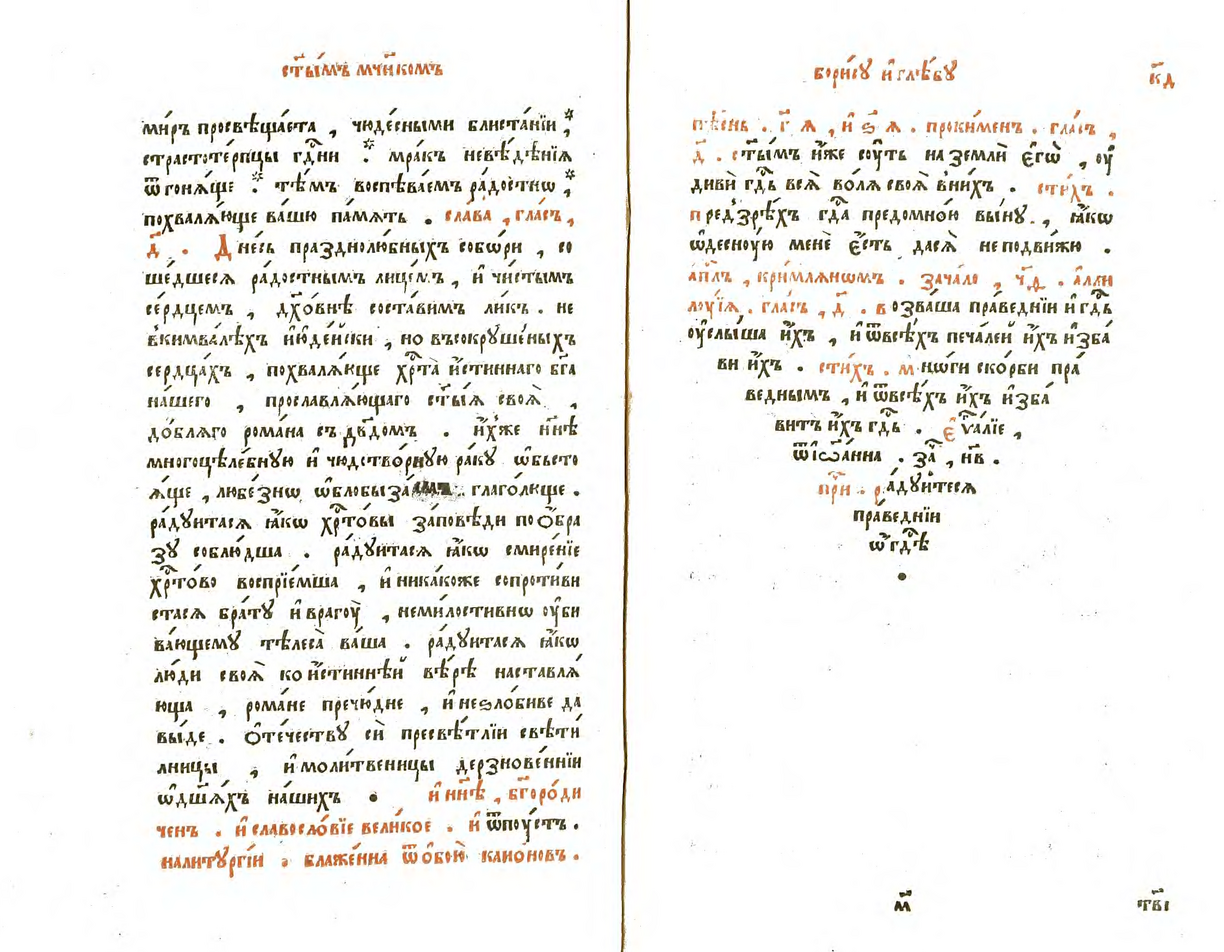 ст҃ы́мъ мч҃нкомъ
ми́ръ просвѣща́ета , чюде́сными блиста́нїи ,҃
страстоте́рпцы гдⷭ҇ни ⁘ мра́къ невѣ́дѣнїѧ
ѿгонѧ́ще ⁘ тѣ́мъ воспѣва́емъ ра́достнѡ ,
похвалѧ́юще ва́шю па́мѧть . сла́ва , гла́съ ,
д҃ . Дне́сь празднолю́бныхъ собѡ́ри , со
ше́дшесѧ ра́достнымъ лице́мъ , и҆ чи́стымъ
се́рдцемъ , дх҃о́внѣ соста́вимъ ли́къ . не
вкимва́лѣхъ и҆юде́йски , но въсокруше́ныхъ
сердца́хъ , похвалѧ́юще хрⷭ҇та̀ и҆́стиннаго бг҃а
на́шего , прославлѧ́ющаго ст҃ы́ѧ своѧ̀ ,
до́блѧго рома́на съ дв҃домъ . и҆́хже нн҃ѣ
многоцѣле́бную и҆ чюдотво́рную ра́ку ѡ҆бьсто
ѧ́ще , любе́знѡ ѡ҆блобыза глаго́люще .
ра́дуитасѧ ꙗ҆́кѡ хрⷭ҇то́вы за́повѣди поо҆́бра
зу соблю́дша . ра́дуитасѧ ꙗ҆́кѡ смире́нїе
хрⷭ҇то́во воспрїе́мша , и҆ никако́же сопроти́ви
стасѧ бра́ту и҆ врагоу̀ , неми́лостивнѡ оу҆би
ва́ющему тѣлеса̀ ва́ша . ра́дуитасѧ ꙗ҆́кѡ
лю́ди своѧ̀ ко и҆́стиннѣй вѣ́рѣ наставлѧ́
юща , рома́не пречю́дне , и҆ неѕло́биве да
вы́де . ѻ҆те́честву сѝ пресвѣ́тлїи свѣти́
лницы , и҆ моли́твеницы дерзнове́ннїи
ѡ҆ дш҃а́хъ на́шихъ . и҆ нн҃ѣ , бг҃оро́ди
ченъ . и҆ славосло́вїе вели́кое . и҆ ѿпоу́стъ .
налиту́ргїи , блаже́нна ѿ ѻ҆бои́ кано́новъ .
бори́су и҆ глѣ́бу
к҃д
пѣ́снь . г҃ ѧ , и҆ ѕ҃ ѧ . проки́менъ . гла́съ ,
д҃ . ст҃ы́мъ и҆́же соу́ть на землѝ є҆гѡ̀ , оу҆
дивѝ гдⷭ҇ь всѧ̀ во́лѧ своѧ̀ в ни́хъ . сти́хъ .
предзрѣ́хъ гдⷭ҇а предомно́ю вы́ну . , ꙗ҆́кѡ
ѡ҆десноу́ю менѐ є҆́сть дасѧ̀ неподви́жю .
а҆пⷭ҇лъ , кри́млѧнѡмъ . зача́ло , ч҃д . а҆лли
лоу́їѧ . гла́съ , д҃ . возва́ша пра́веднїи и҆ гдⷭ҇ь
оу҆слы́ша и҆́хъ , и҆ ѿвсѣ́хъ печа́леи и҆́хъ и҆зба́
ви и҆́хъ . сти́хъ . мно́ги ско́рби пра́
веднымъ , и҆ ѿвсѣ́хъ и҆́хъ и҆зба́
витъ и҆́хъ гдⷭ҇ь . є҆ѵⷢ҇а́лїе ,
ѿ і҆ѡа́нна . за , н҃в .
при . ра́дуитесѧ
пра́веднїи
ѡ҆ гдⷭ҇ѣ
.
м҃
тв҃і